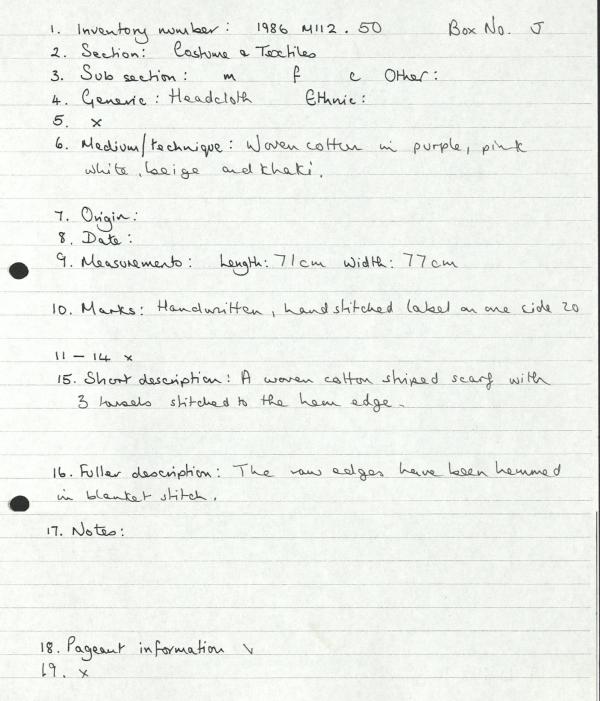 1. Inventory number: 1986 M112.50 Box No. J
2. Section: Costume & Textiles
3. Sub section: m f c Other:
4. Generic: Headcloth Ethnic:
5. x
6. Medium/technique: Woven cotton in purple, pink
white, beige and khaki.
7. Origin:
8. Date:
9. Measurements: Length: 71cm Width: 77cm
10. Marks: Handwritten, handstitched label on one side 20
11 - 14 x
15. Short description: A woven cotton striped scarf with
3 tassels stitched to the hem edge.
16. Fuller description: The raw edges have been hemmed
in blanket stitch.
17. Notes:
18. Pageant information
19. x